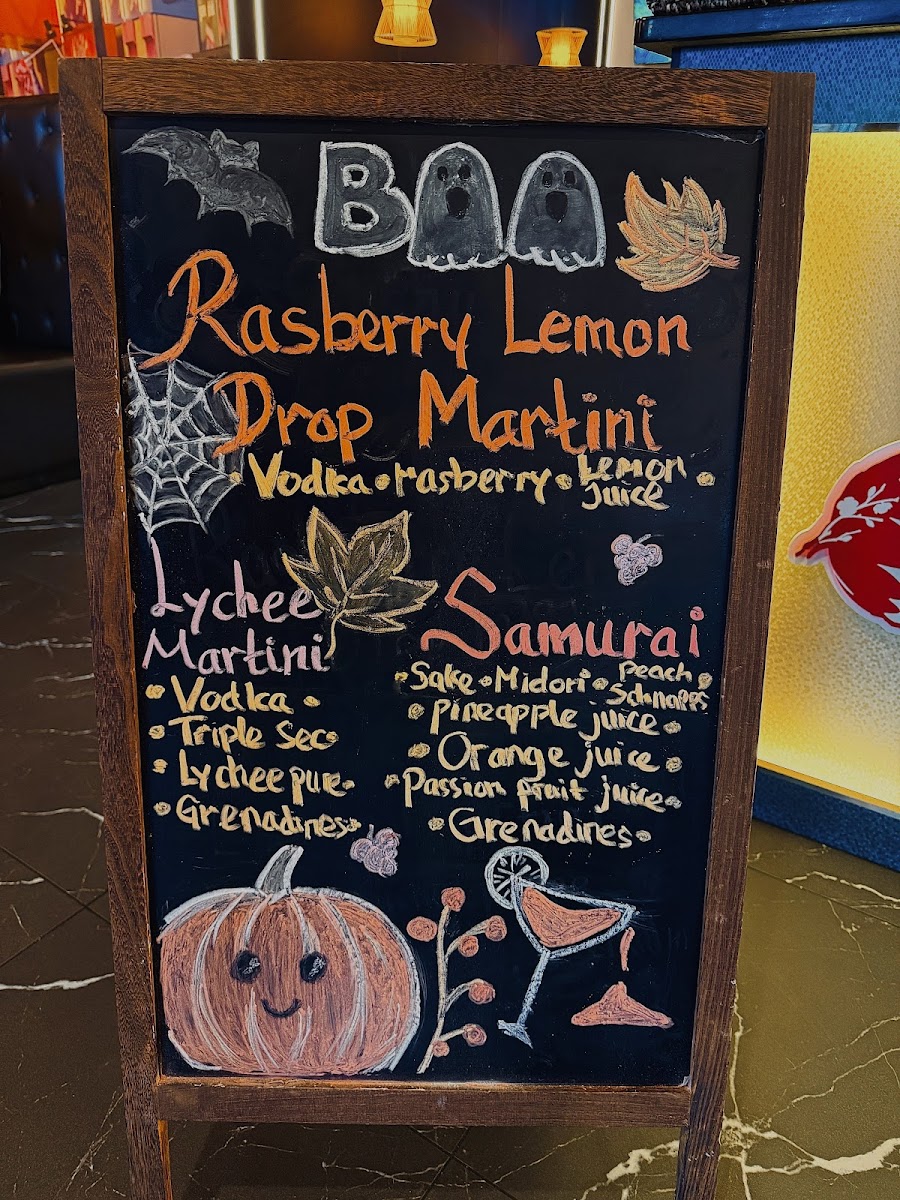 BOO
Rasberry Lemon
Drop Martini
Vodka • rasberry • Lemon juice •
Lychee
Martini
• Vodka •
• Triple Sec •
• Lychee pure •
• Grenadines •
Samurai
• Sake • Midori • Peach Schnapps •
• Pineapple juice •
• Orange juice •
• Passion fruit juice •
• Grenadines •